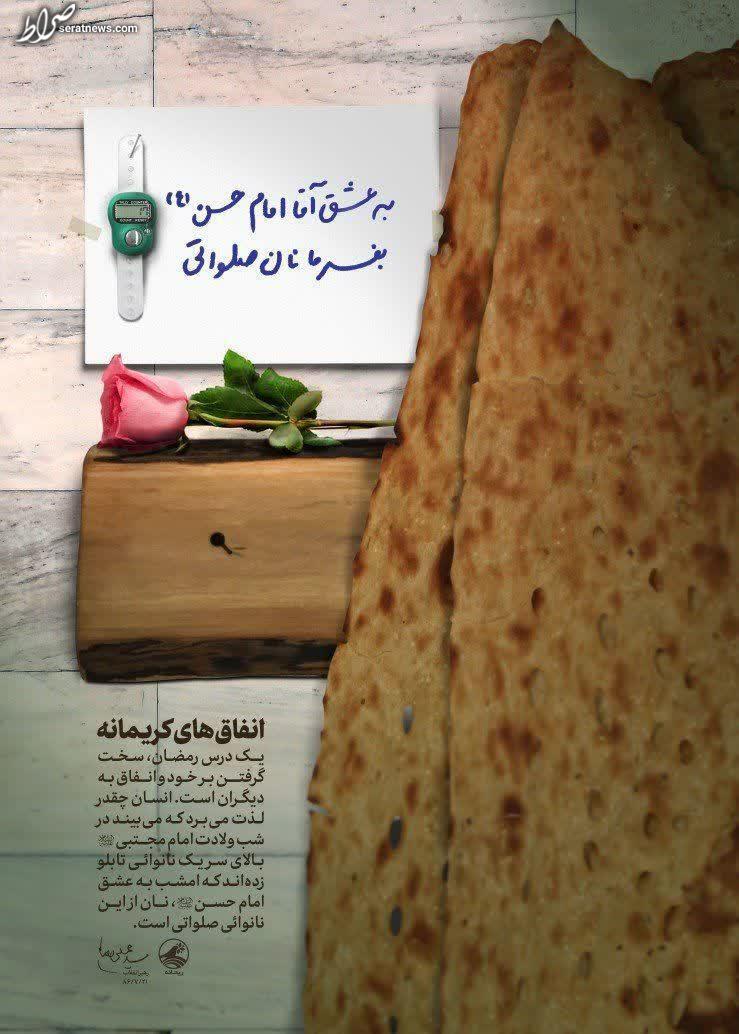 صراط
seratnews.com
به عشق آقا امام حسن "ع"
بفرما نان صلواتی
TALLY COUNTER
COUNT RESET
انفاق‌های کریمانه
یک درس رمضان، سخت
گرفتن بر خود و انفاق به
دیگران است. انسان چقدر
لذت می‌برد که می‌بیند در
شب ولادت امام مجتبی
بالای سر یک نانوائی تابلو
زده‌اند که امشب به عشق
امام حسن، نان از این
نانوائی صلواتی است.
ریحانه
رهبر انقلاب
۸۶/۷/۲۱